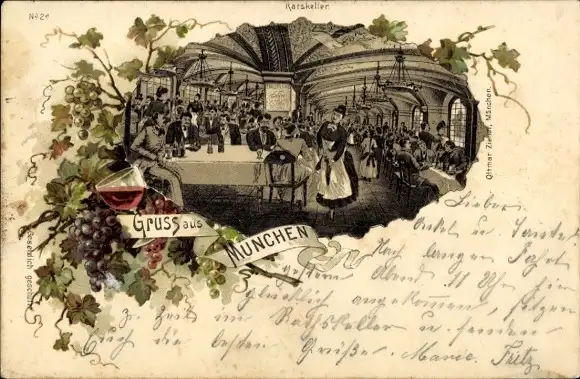 No 24
Ratskeller.
Ottmar Zieher, München.
Gesetzlich geschützt
GRUSS aus
MÜNCHEN
Lieber
Onkel u. Tante!
Nach langer Fahrt
gestern Abend 11 Uhr hier
glücklich angekommen, sitzen
zur Zeit im Rathskeller u. senden
Euch die besten Grüße. Marie. Fritz